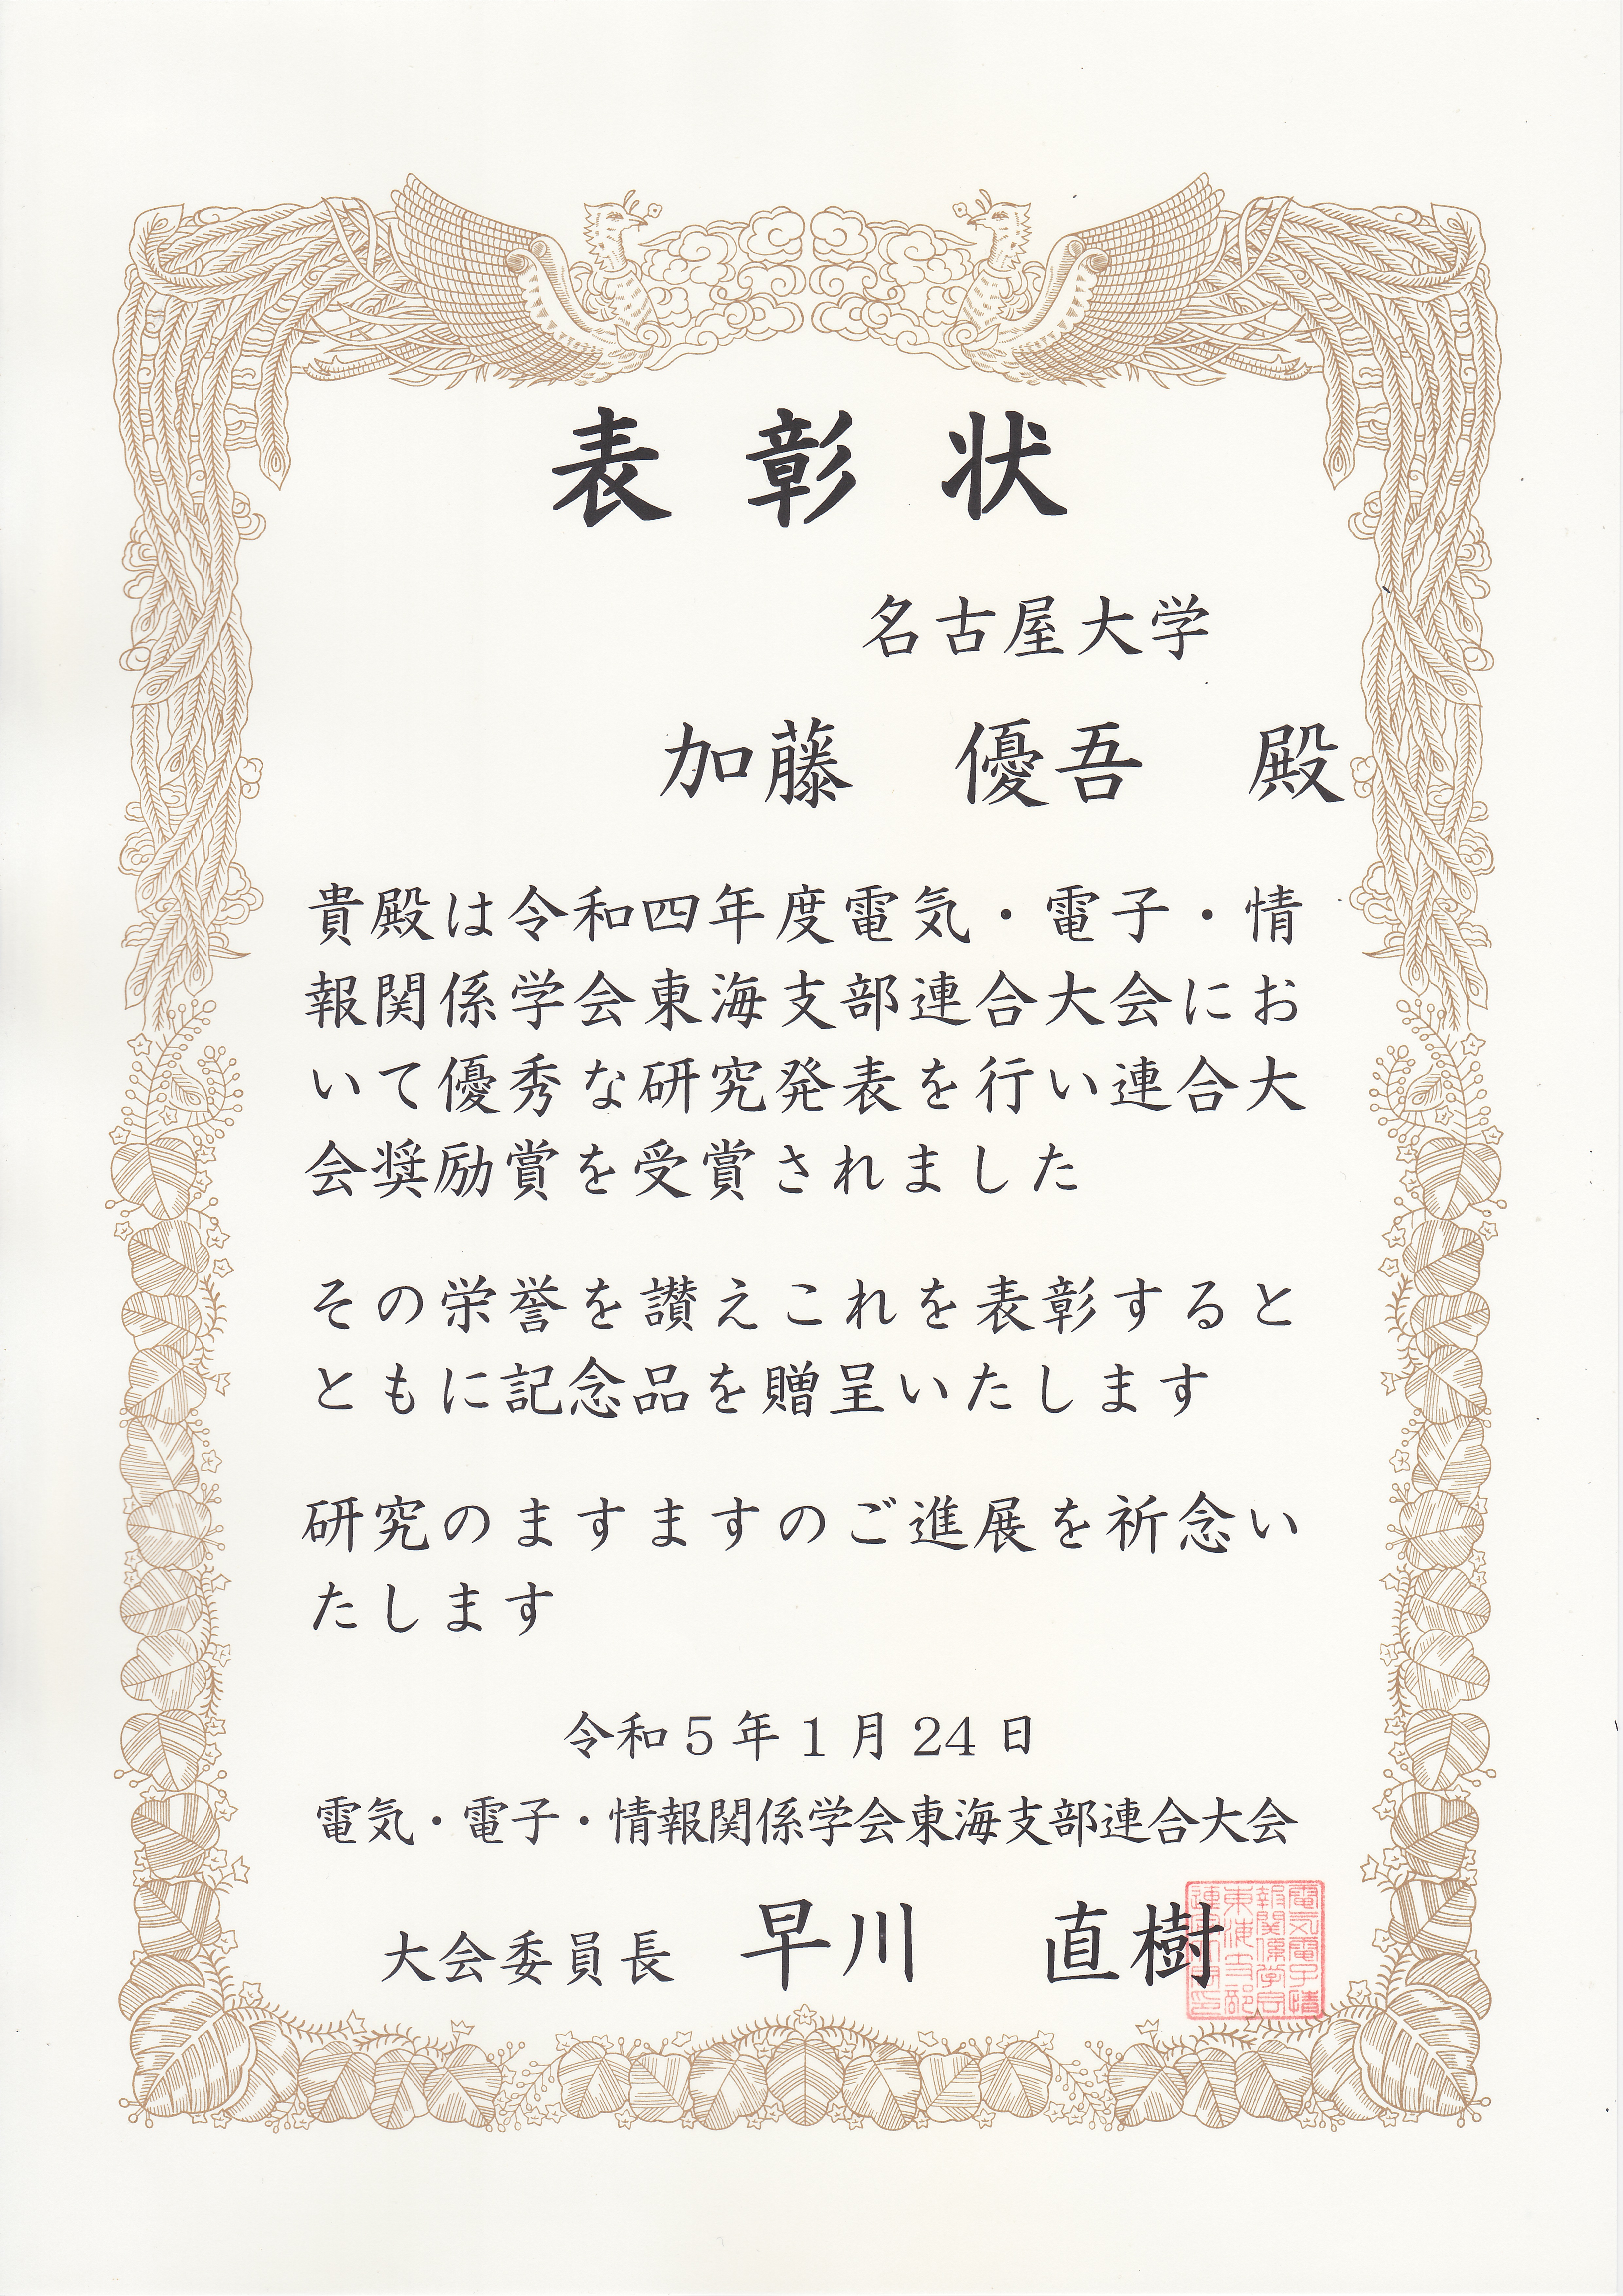 表彰状
名古屋大学
加藤　優吾　殿
貴殿は令和四年度電気・電子・情
報関係学会東海支部連合大会にお
いて優秀な研究発表を行い連合大
会奨励賞を受賞されました
その栄誉を讃えこれを表彰すると
ともに記念品を贈呈いたします
研究のますますのご進展を祈念い
たします
令和5年1月24日
電気・電子・情報関係学会東海支部連合大会
大会委員長　早川　直樹